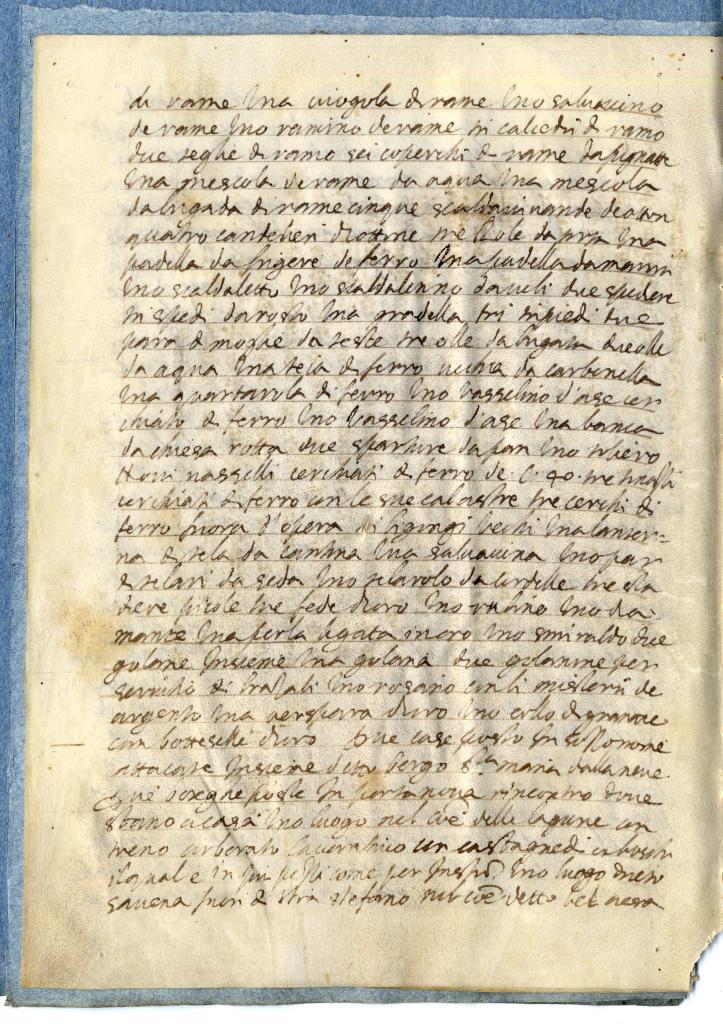 di rame Una cuogola di rame Uno saluaccino
de rame Uno ramino de rame tri calcedri di ramo
due seghe di ramo sei coperchi di rame da pignatte
Una mescola de rame da aqua Una mescola
da bugada di rame cinque scaldauiuande de oton
quatro candelieri di ottone tre da Una
padella da frigere de ferro Una padella da maroni
Uno scaldaletto Uno scaldalettino da ueli due spedere
tri spedi da rosto Una gradella tri tripiedi due
para di da teste tre olle da bugada due olle
da aqua Una teia di ferro uechia da carbonella
Una quartarola di ferro Uno vasselino d'ase cer
chiato di ferro Uno vasselino d'ase Una banca
da chiesa rotta due sparture da pan Uno
Noui vasselli cerchiati di ferro de C 40 tre
cerchiati di ferro con le sue calastre tre cerchi di
ferro fuora d'opera uechi Una lanter=
na di tela da cantina Una saluaccina Uno par
di telari da seda Uno telarolo da cordelle tre sta
dere picole tre fede d'oro Uno rubino Uno dia
mante Una perla ligata in oro Uno smiraldo due
golane Insieme Una golana due golanine per
di Uno rosario con li misterii de
argento Una d'oro Uno collo di granate
con bottoselle d'oro Due case poste In
attacate Insieme detto borgo S.ta maria dala neue
Due poste In porta noua rincontro doue
stanno a casa Uno luogo nel Coe delle lagune con
treno arborato con castagnedi
il qual e In come per Uno luogo
sauena fuori di Stra stefano nel Coe detto bel